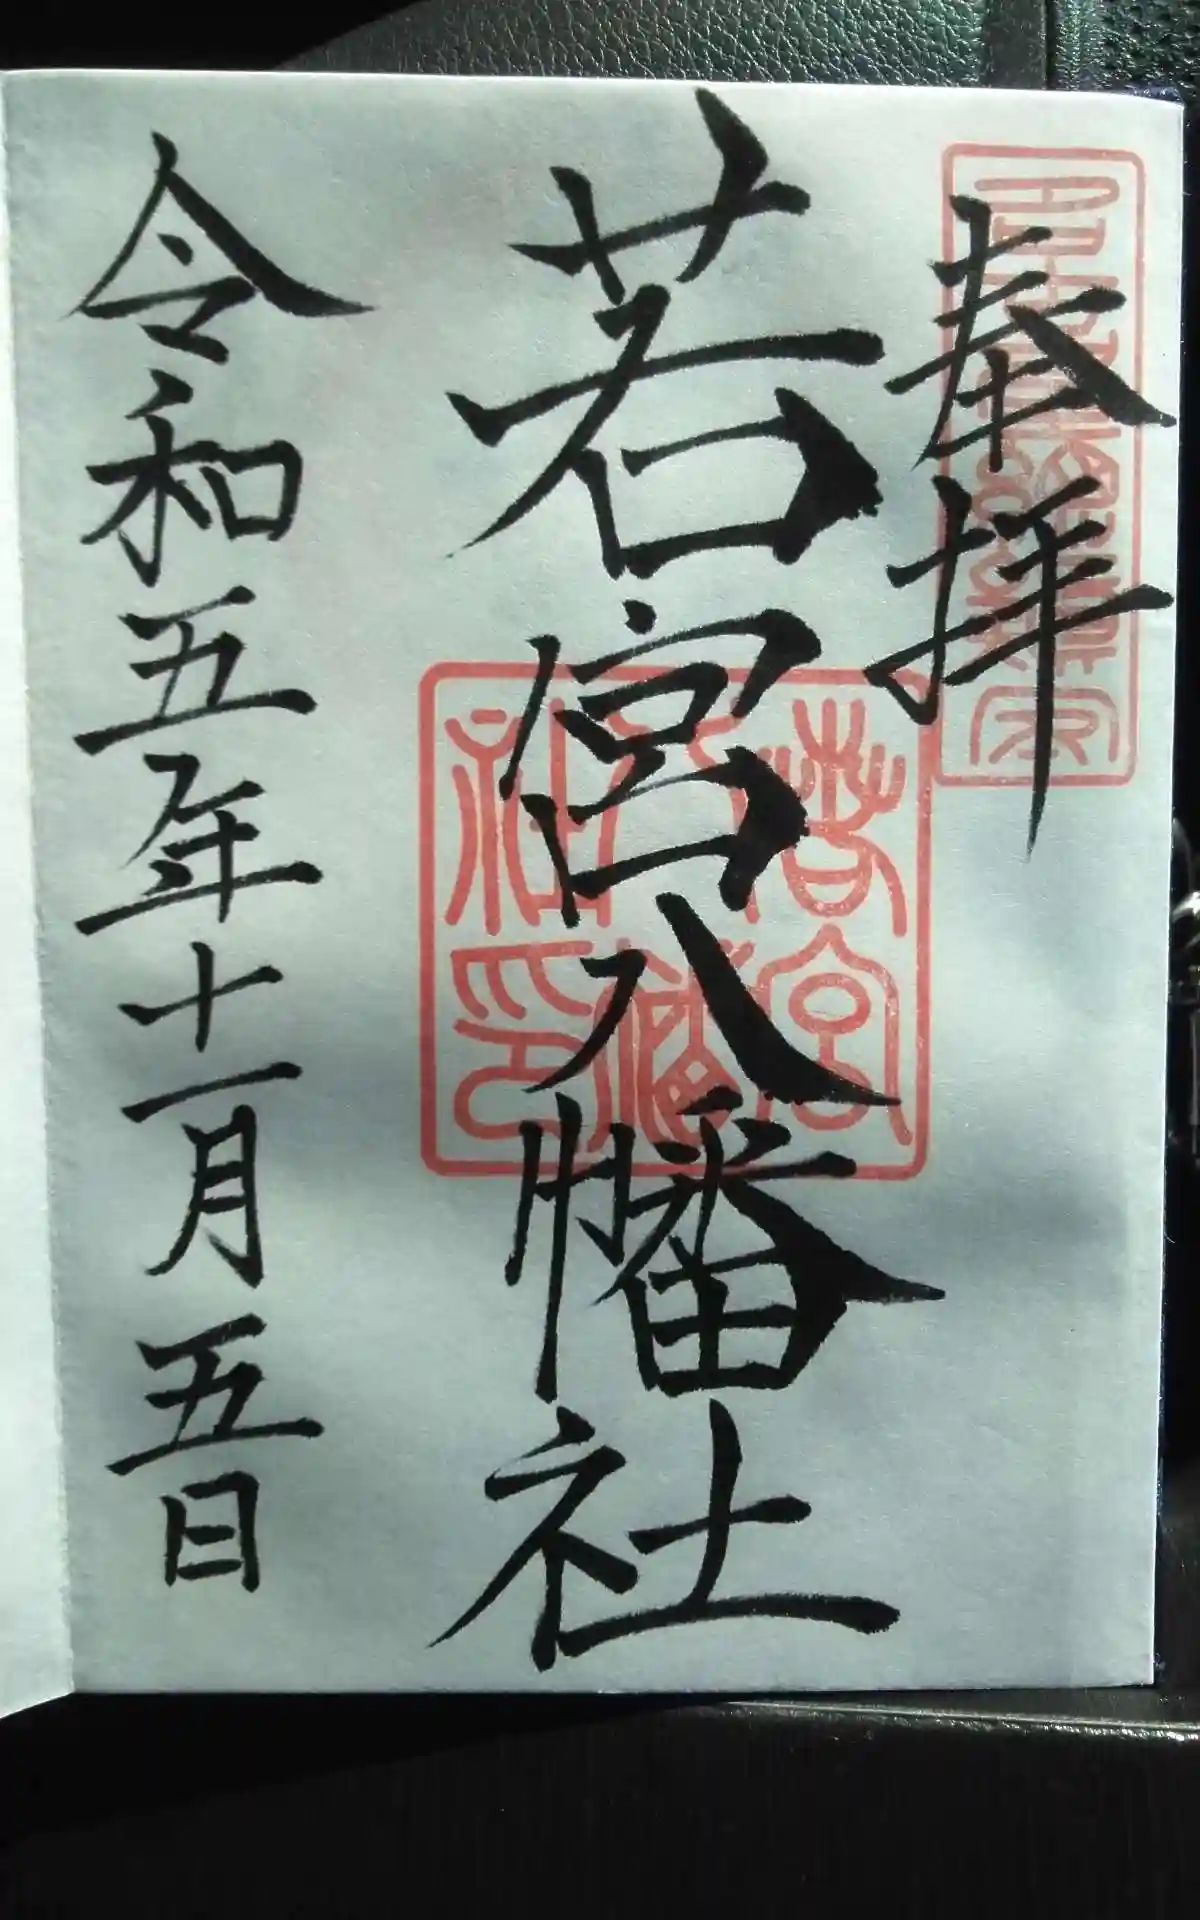 奉拝
若宮八幡社
令和五年十一月五日
若宮
八幡
社印